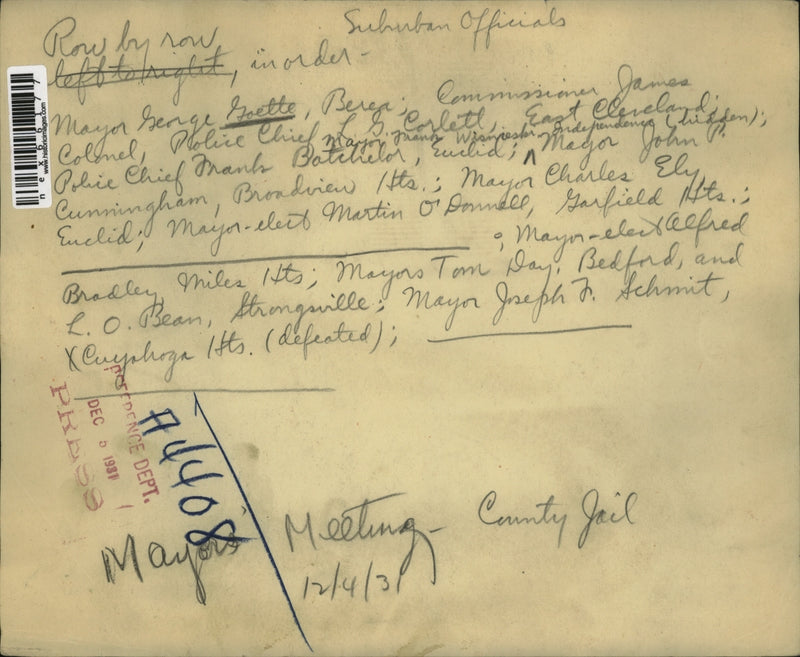 Suburban Officials
Row by row
left to right, in order -
Mayor George Goette, Berea; Commissioner James
Colonel, Police Chief L. G. Corlett, East Cleveland;
Mayor Frank Wisnieski Independence (hidden);
Police Chief Frank Batchelor, Euclid; ^ Mayor John P.
Cunningham, Broadview Hts.; Mayor Charles Ely,
Euclid; Mayor-elect Martin O'Donnell, Garfield Hts.;
; Mayor-elect X Alfred
Bradley, Miles Hts; Mayors Tom Day, Bedford, and
L. O. Bean, Strongsville; Mayor Joseph F. Schmit,
X Cuyahoga Hts. (defeated);
REFERENCE DEPT.
DEC 5 1931
PRESS
A4408
Mayors' Meeting - County Jail
12/4/31
www.historicimages.com